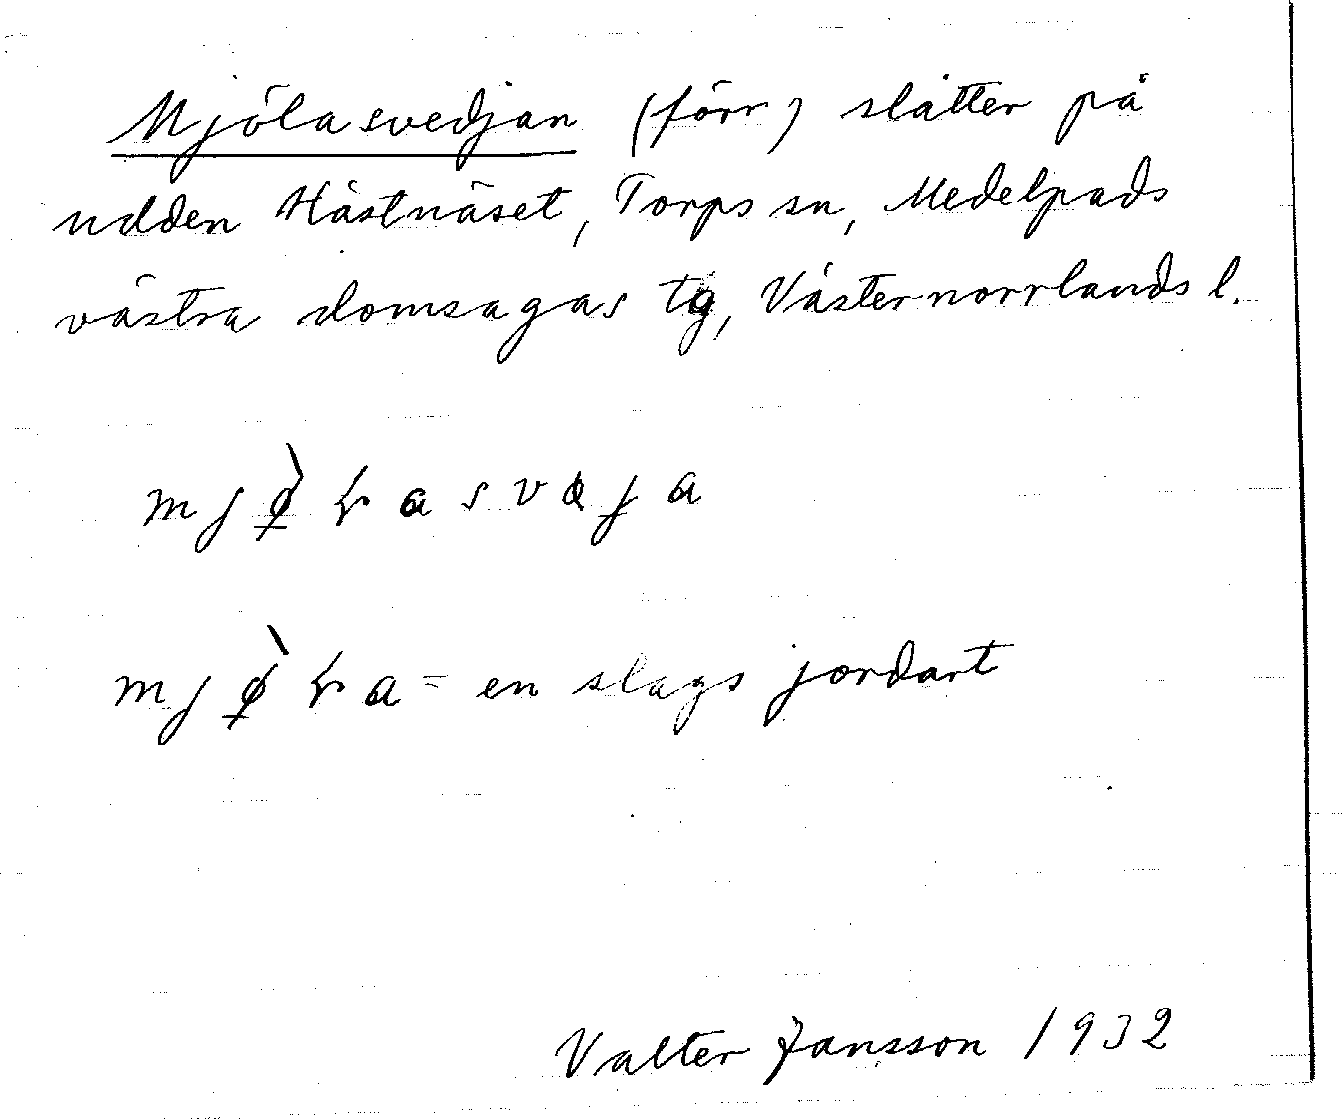 Mjölasvedjan (förr) slåtter på
udden Hästnäset, Torps sn, Medelpads
västra domsagas tg, Västernorrlands l.
mjø̀ɽasvaja
mjø̀ɽa = en slags jordart
Valter Jansson 1932